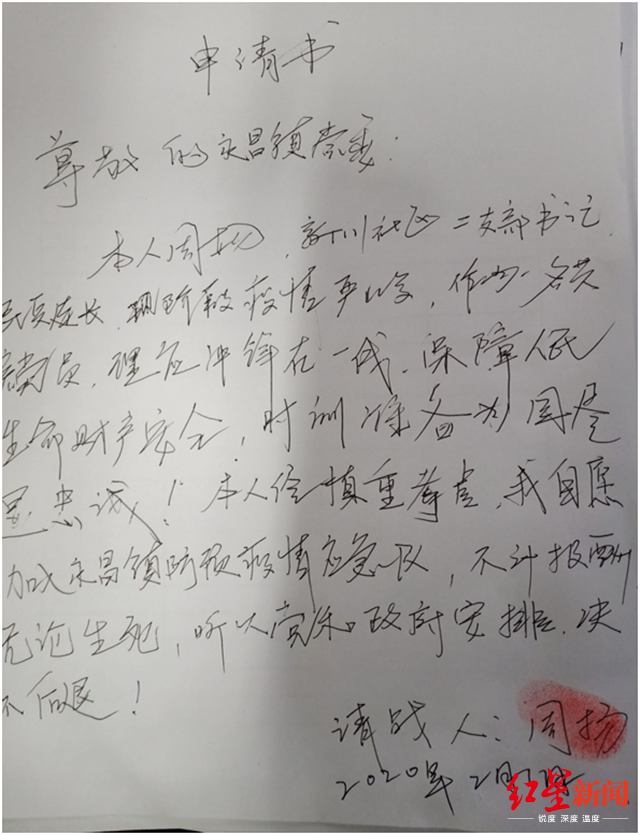 申请书
尊敬的永昌镇党委：
本人周扬，新川社区二支部书记
民兵连长，现阶段疫情严峻，作为一名共
产党员，理应冲锋在一线，保障人民
生命财产安全，时刻准备为国尽
忠诚！本人经慎重考虑，我自愿
加入永昌镇防预疫情应急队，不计报酬
无论生死，听从党和政府安排，决
不后退！
请战人：周扬
2020年2月
红星新闻
锐度 深度 温度